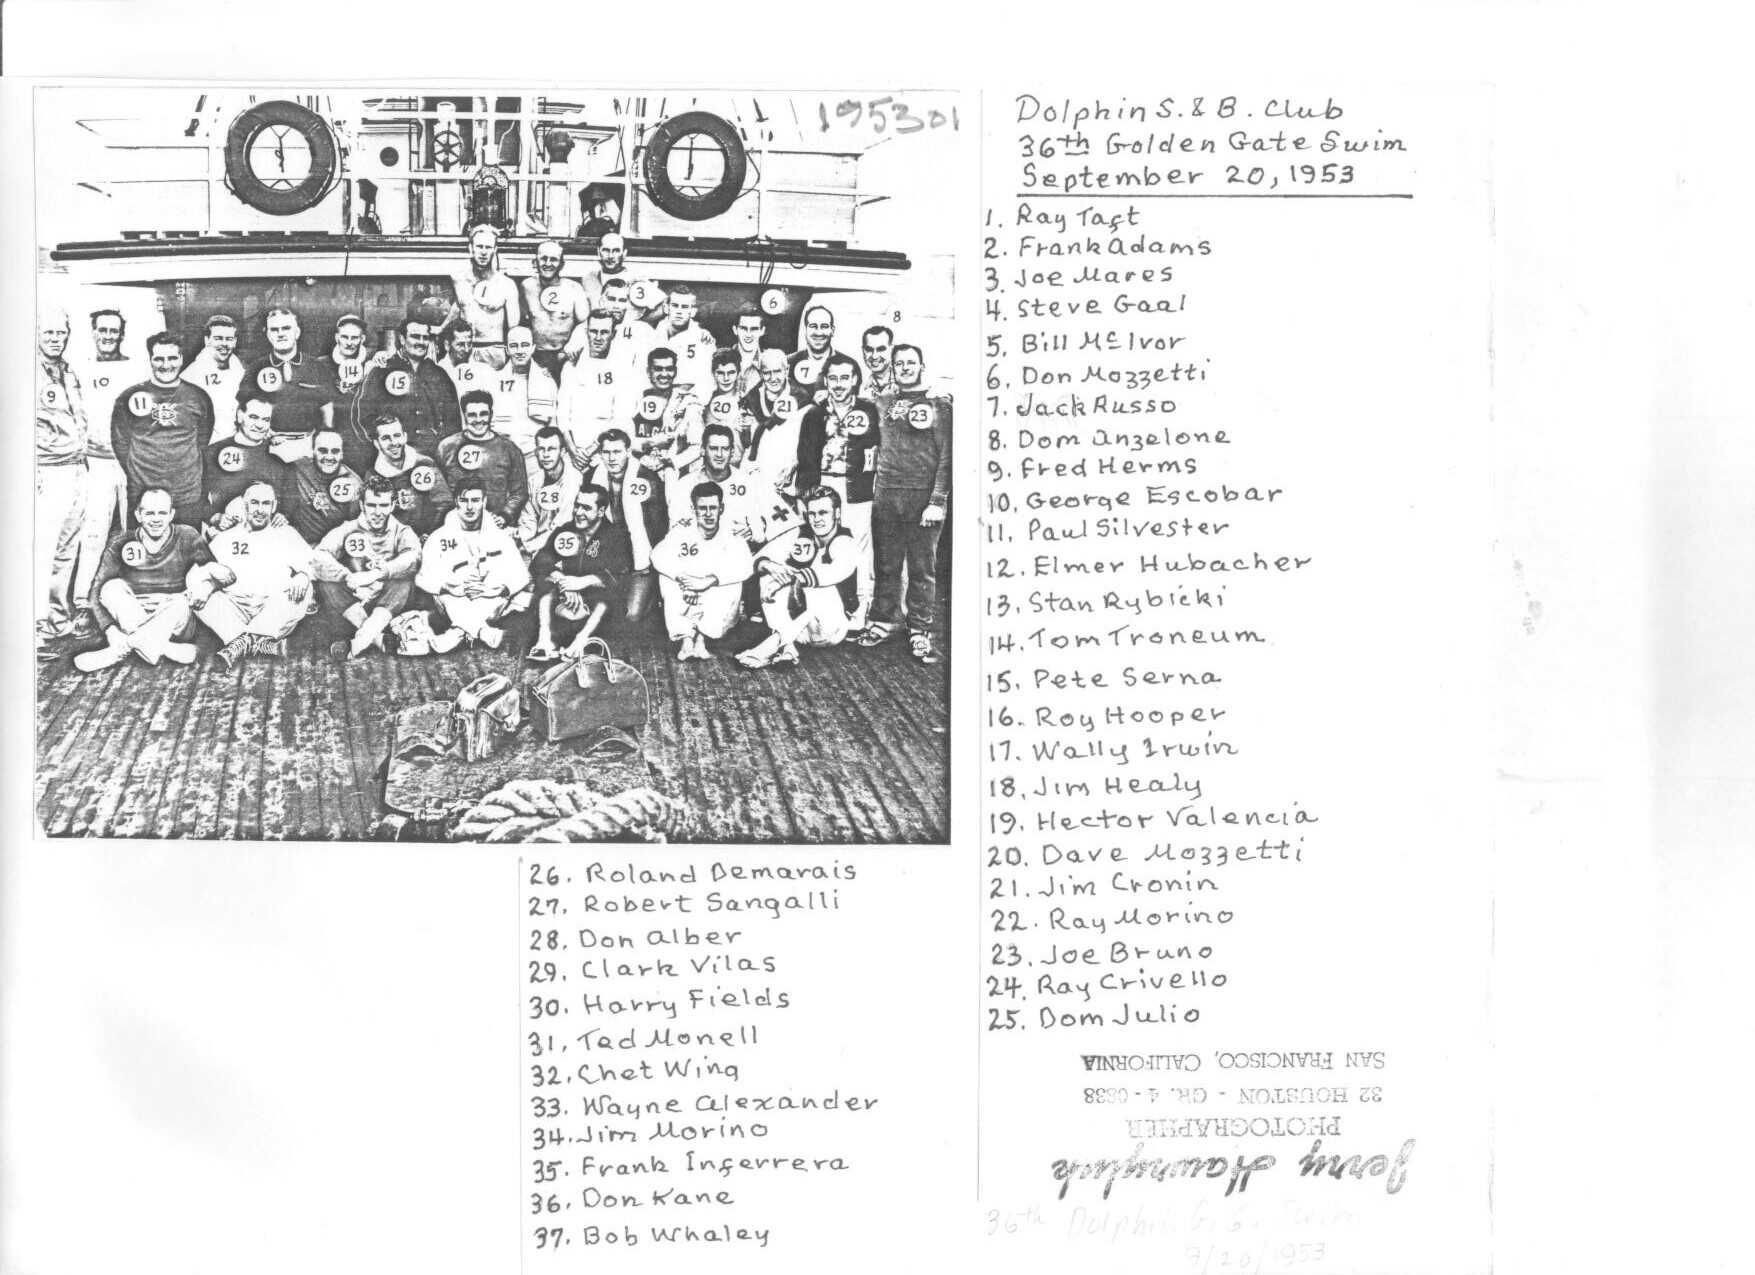 195301
Dolphin S. & B. Club
36th Golden Gate Swim
September 20, 1953
1. Ray Taft
2. Frank Adams
3. Joe Mares
4. Steve Gaal
5. Bill McIvor
6. Don Mozzetti
7. Jack Russo
8. Dom Anzelone
9. Fred Herms
10. George Escobar
11. Paul Silvester
12. Elmer Hubacher
13. Stan Rybicki
14. Tom Troneum
15. Pete Serna
16. Roy Hooper
17. Wally Irwin
18. Jim Healy
19. Hector Valencia
20. Dave Mozzetti
21. Jim Cronin
22. Ray Morino
23. Joe Bruno
24. Ray Crivello
25. Dom Julio
26. Roland Demarais
27. Robert Sangalli
28. Don Alber
29. Clark Vilas
30. Harry Fields
31. Ted Monell
32. Chet Wing
33. Wayne Alexander
34. Jim Morino
35. Frank Inferrera
36. Don Kane
37. Bob Whaley
1
2
3
4
5
6
7
8
9
10
11
12
13
14
15
16
17
18
19
20
21
22
23
24
25
26
27
28
29
30
31
32
33
34
35
36
37
Jerry
PHOTOGRAPHER
32 HOUSTON - GR. 4-0838
SAN FRANCISCO, CALIFORNIA
36th Dolphin G. G. Swim
9/20/1953